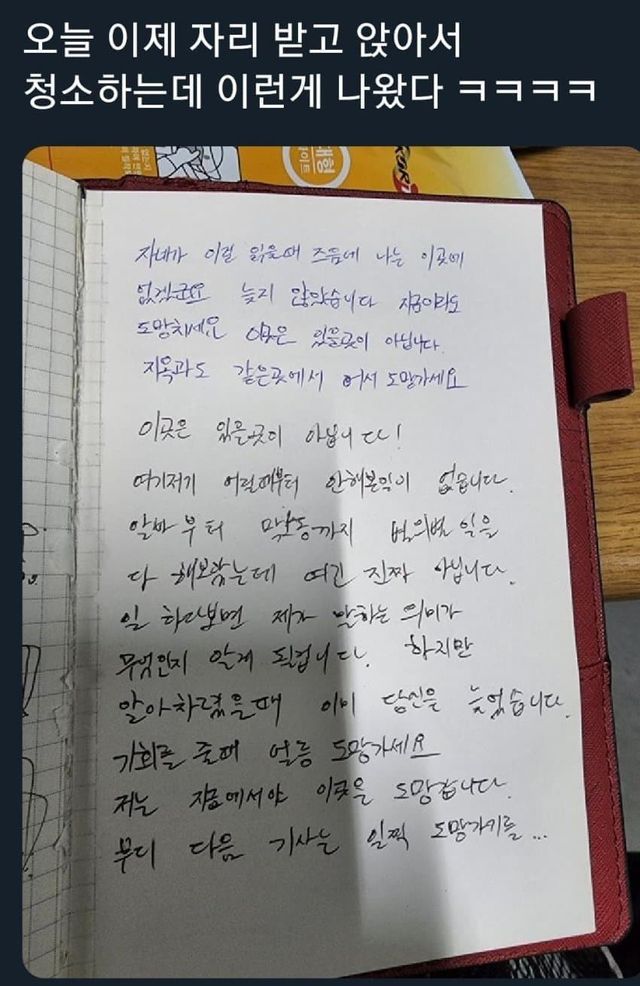 오늘 이제 자리 받고 앉아서
청소하는데 이런게 나왔다 ㅋㅋㅋㅋ
자네가 이걸 읽을때 즈음에 나는 이곳에
없겠군요 늦지 않았습니다 지금이라도
도망치세요 이곳은 있을곳이 아닙니다.
지옥과도 같은곳에서 어서 도망가세요
이곳은 있을곳이 아닙니다!
여기저기 어릴때부터 안해본일이 없습니다.
알바부터 막노동까지 별의별 일을
다 해보았는데 여긴 진짜 아닙니다.
일 하다보면 제가 말하는 의미가
무엇인지 알게 될겁니다. 하지만
알아차렸을때 이미 당신은 늦었습니다.
기회를 줄때 얼릉 도망가세요
저는 지금에서야 이곳을 도망갑니다.
부디 다음 기사는 일찍 도망가기를...